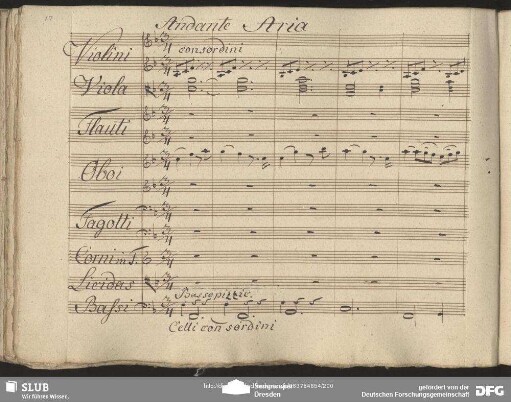 Andante Aria
Violini
con sordini
Viola
Flauti
Oboi
Fagotti
Corni in F.
Licidas
Basso pizzic.
Bassi
Celli con sordini
SLUB
Wir führen Wissen.
Dresden
gefördert von der
Deutschen Forschungsgemeinschaft
DFG